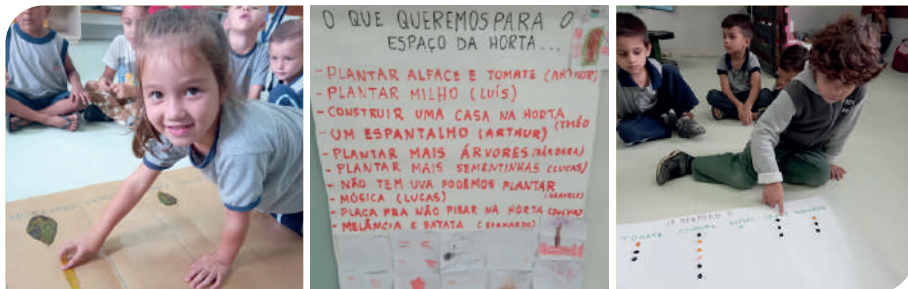 O QUE QUEREMOS PARA O
ESPAÇO DA HORTA...
- PLANTAR ALFACE E TOMATE (ARTHUR)
- PLANTAR MILHO (LUÍS)
- CONSTRUIR UMA CASA NA HORTA
UM ESPANTALHO (ARTHUR) (THÉO
- PLANTAR MAIS ÁRVORES (BÁRBARA)
- PLANTAR MAIS SEMENTINHAS (LUCAS)
- NÃO TEM UVA PODEMOS PLANTAR
- MÚSICA (LUCAS)
- PLACA PRA NÃO PISAR NA HORTA
- MELÂNCIA E BATATA (BERNARDO)
TOMATE CENOURA